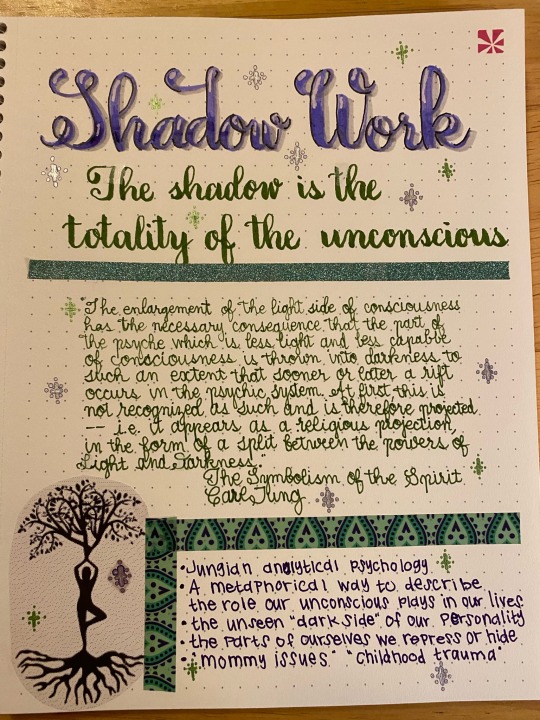 Shadow Work
The shadow is the
totality of the unconscious
"The enlargement of the light side of consciousness
has the necessary consequence that the part of
the psyche which is less light and less capable
of consciousness is thrown into darkness to
such an extent that sooner or later a rift
occurs in the psychic system. At first this is
not recognized as such and is therefore projected
-- i.e. it appears as a religious projection,
in the form of a split between the powers of
Light and Darkness."
The Symbolism of the Spirit
Carl Jung
•Jungian analytical psychology
•A metaphorical way to describe
the role our unconscious plays in our lives
•the unseen "dark side" of our personality
•the parts of ourselves we repress or hide
•"mommy issues" "childhood trauma"